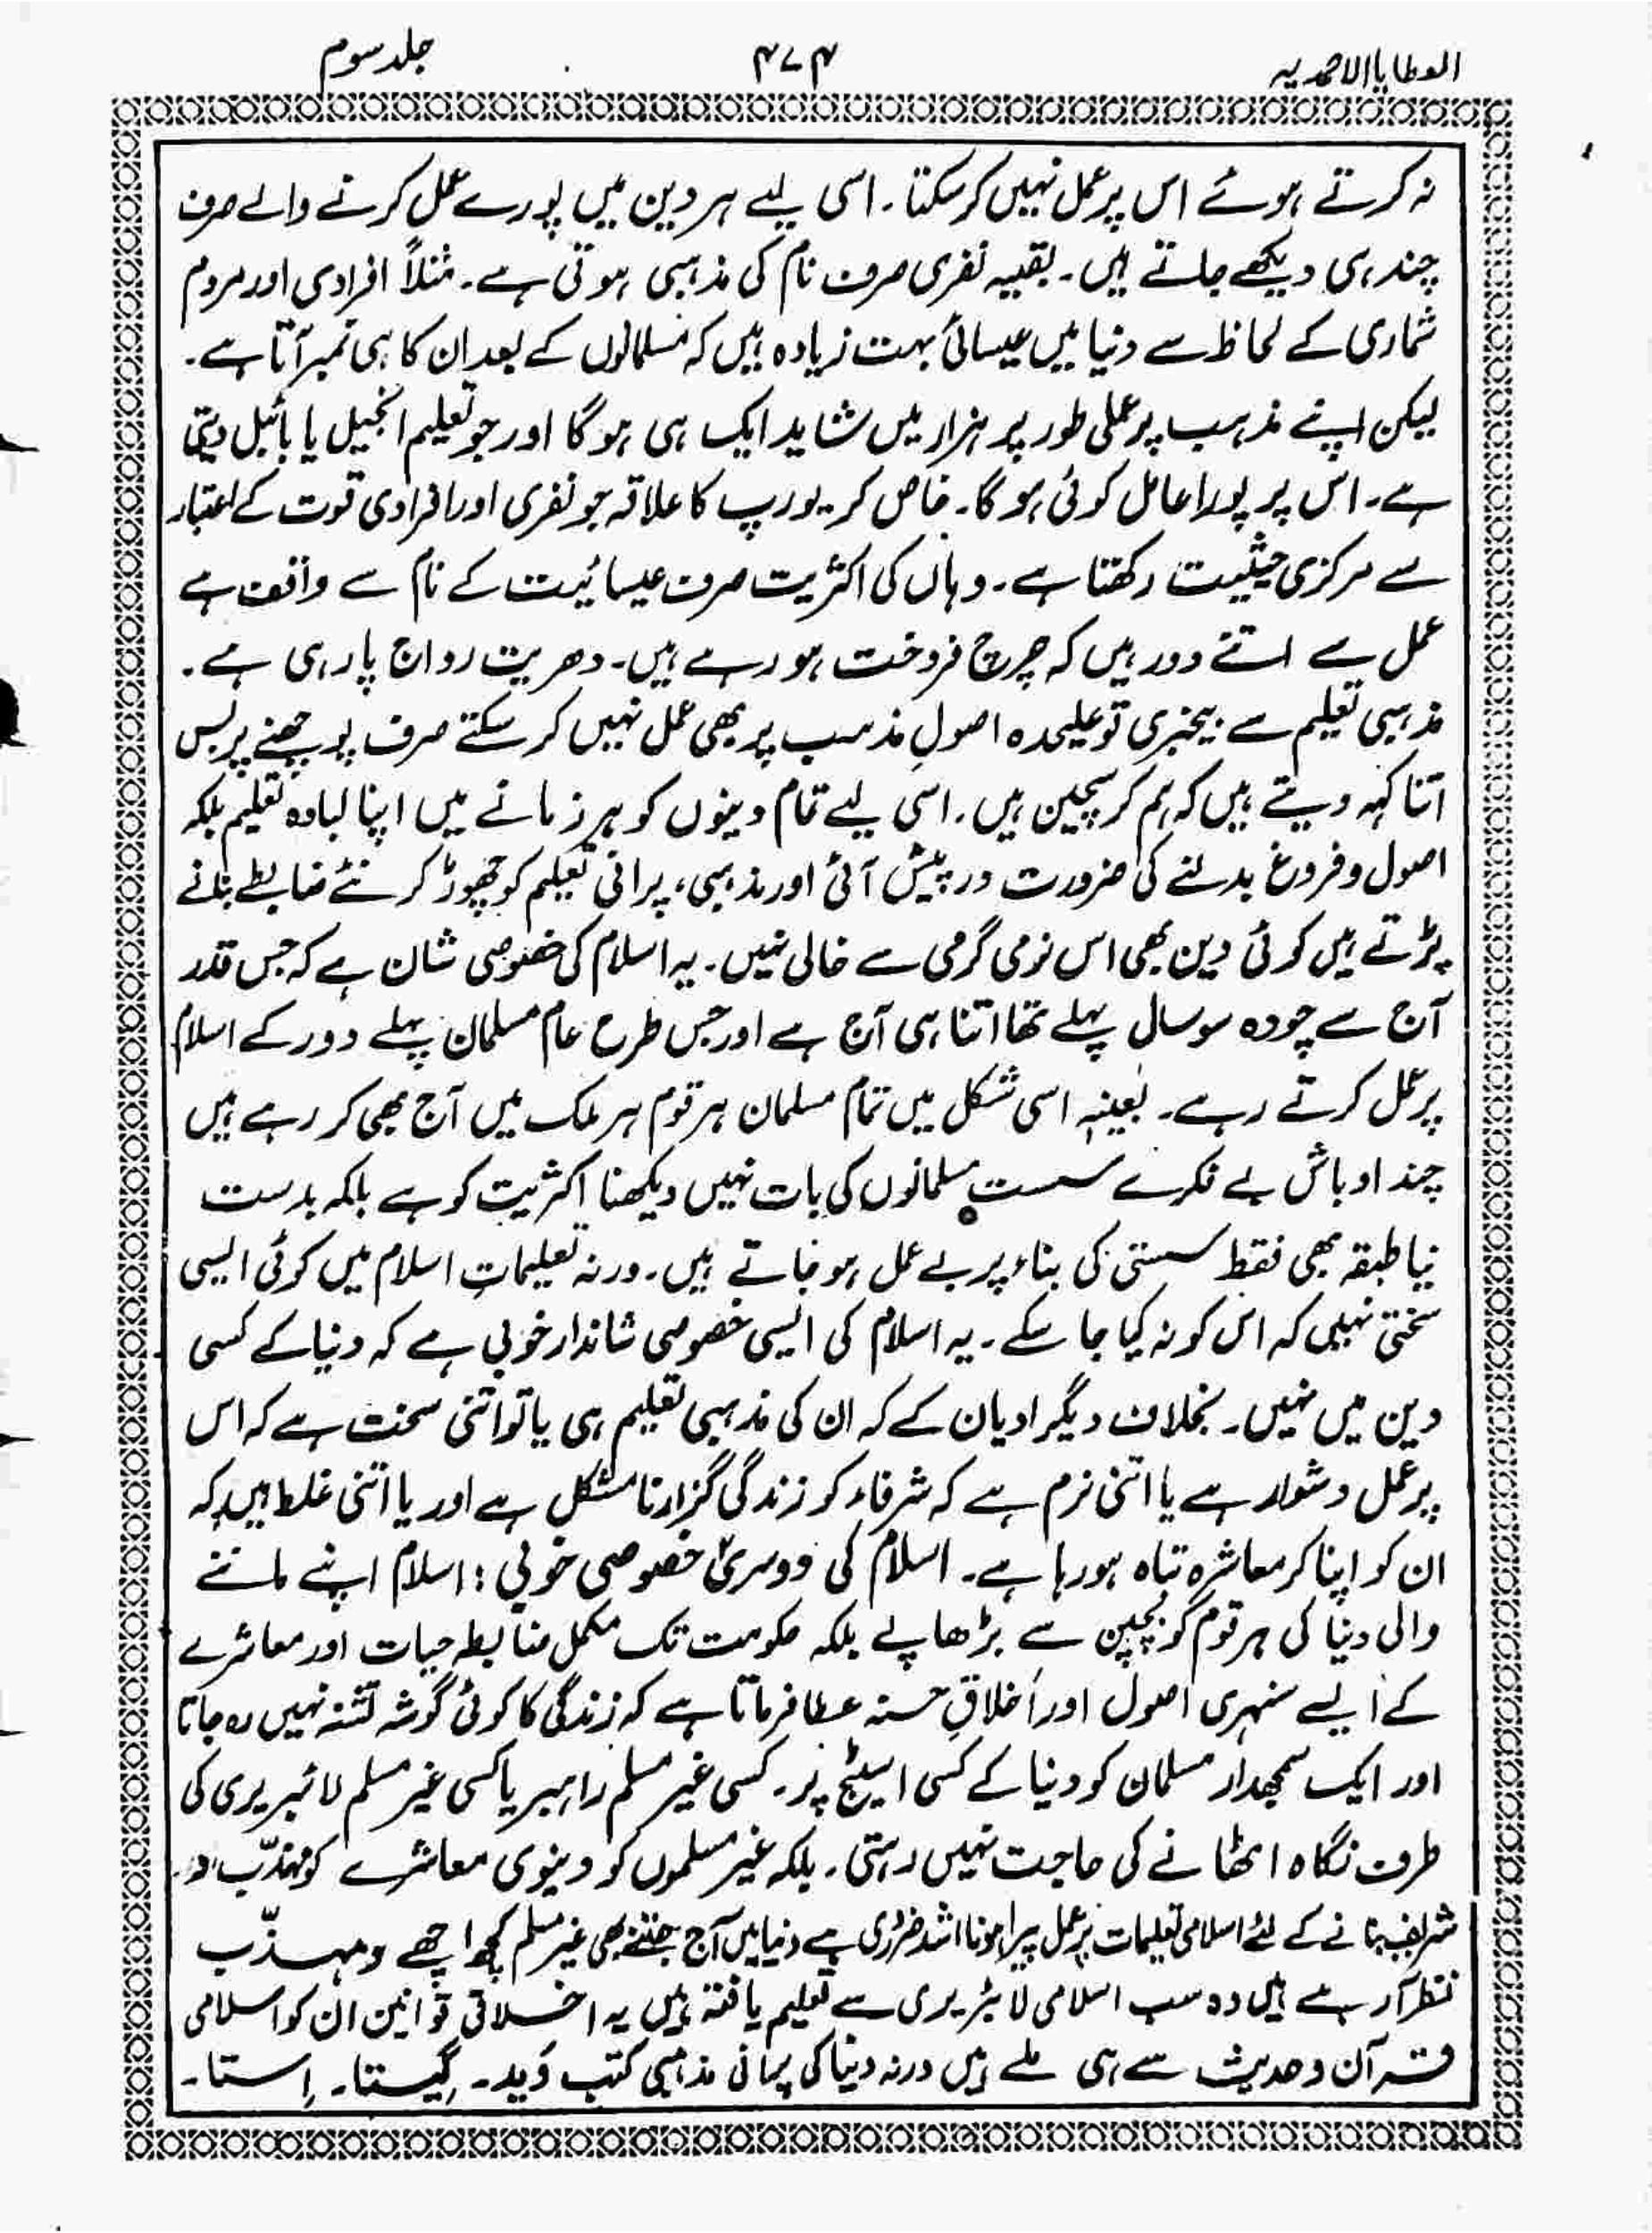 العطایا الاحمدیہ
۴۷۴
جلد سوم
نہ کرتے ہوئے اس پر عمل نہیں کر سکتا۔ اسی لیے ہر دین میں پورے عمل کرنے والے صرف
چند ہی دیکھے جاتے ہیں۔ بقیہ نفری صرف نام کی مذہبی ہوتی ہے۔ مثلاً افرادی اور مردم
شماری کے لحاظ سے دنیا میں عیسائی بہت زیادہ ہیں کہ مسلمانوں کے بعد ان کا ہی نمبر آتا ہے۔
لیکن اپنے مذہب پر عملی طور پر ہزار میں شاید ایک ہی ہوگا اور جو تعلیم انجیل یا بائبل دیتی
ہے۔ اس پر پورا عامل کوئی ہوگا۔ خاص کر یورپ کا علاقہ جو نفری اور افرادی قوت کے اعتبار
سے مرکزی حیثیت رکھتا ہے۔ وہاں کی اکثریت صرف عیسائیت کے نام سے واقف ہے
عمل سے اتنے دور ہیں کہ چرچ فروخت ہو رہے ہیں۔ دھریت رواج پا رہی ہے۔
مذہبی تعلیم سے بیخبری تو علیحدہ اصولِ مذہب پر بھی عمل نہیں کر سکتے صرف پوچھنے پر بس
اتنا کہہ دیتے ہیں کہ ہم کرسچین ہیں۔ اسی لیے تمام دینوں کو ہر زمانے میں اپنا لبادہ تعلیم بلکہ
اصول و فروغ بدلنے کی ضرورت درپیش آئی اور مذہبی، پرانی تعلیم کو چھوڑ کر نئے ضابطے بنانے
پڑتے ہیں کوئی دین بھی اس نرمی گرمی سے خالی نہیں۔ یہ اسلام کی خصوصی شان ہے کہ جس قدر
آج سے چودہ سو سال پہلے تھا اتنا ہی آج ہے اور جس طرح عام مسلمان پہلے دور کے اسلام
پر عمل کرتے رہے۔ بعینہٖ اسی شکل میں تمام مسلمان ہر قوم ہر ملک میں آج بھی کر رہے ہیں
چند اوباش بے فکرے سست مسلمانوں کی بات نہیں دیکھنا اکثریت کو ہے بلکہ بدمست
نیا طبقہ بھی فقط سستی کی بناء پر بے عمل ہو جاتے ہیں۔ ورنہ تعلیماتِ اسلام میں کوئی ایسی
سختی نہیں کہ اس کو نہ کیا جا سکے۔ یہ اسلام کی ایسی خصوصی شاندار خوبی ہے کہ دنیا کے کسی
دین میں نہیں۔ بخلاف دیگر ادیان کے کہ ان کی مذہبی تعلیم ہی یا تو اتنی سخت ہے کہ اس
پر عمل دشوار ہے یا اتنی نرم ہے کہ شرفاء کو زندگی گزارنا مشکل ہے اور یا اتنی غلط ہیں کہ
ان کو اپنا کر معاشرہ تباہ ہو رہا ہے۔ اسلام کی دوسری خصوصی خوبی: اسلام اپنے ماننے
والی دنیا کی ہر قوم کو بچپن سے بڑھاپے بلکہ حکومت تک مکمل ضابطہ حیات اور معاشرے
کے ایسے سنہری اصول اور اَخلاقِ حسنہ عطا فرماتا ہے کہ زندگی کا کوئی گوشہ تشنہ نہیں رہ جاتا
اور ایک سمجھدار مسلمان کو دنیا کے کسی اسٹیج پر۔ کسی غیر مسلم راہبر یا کسی غیر مسلم لائبریری کی
طرف نگاہ اٹھانے کی حاجت نہیں رہتی۔ بلکہ غیر مسلموں کو دینوی معاشرے کو مہذّب اور
شریف بنانے کے لئے اسلامی تعلیمات پر عمل پیرا ہونا اشد ضروری ہے دنیا میں آج جتنے بھی غیر مسلم کچھ اچھے و مہذّب
نظر آ رہے ہیں وہ سب اسلامی لائبریری سے تعلیم یافتہ ہیں یہ اخلاقی قوانین ان کو اسلامی
قرآن و حدیث سے ہی ملے ہیں ورنہ دنیا کی پرانی مذہبی کتب وَید۔ گیستا۔ اِستا۔